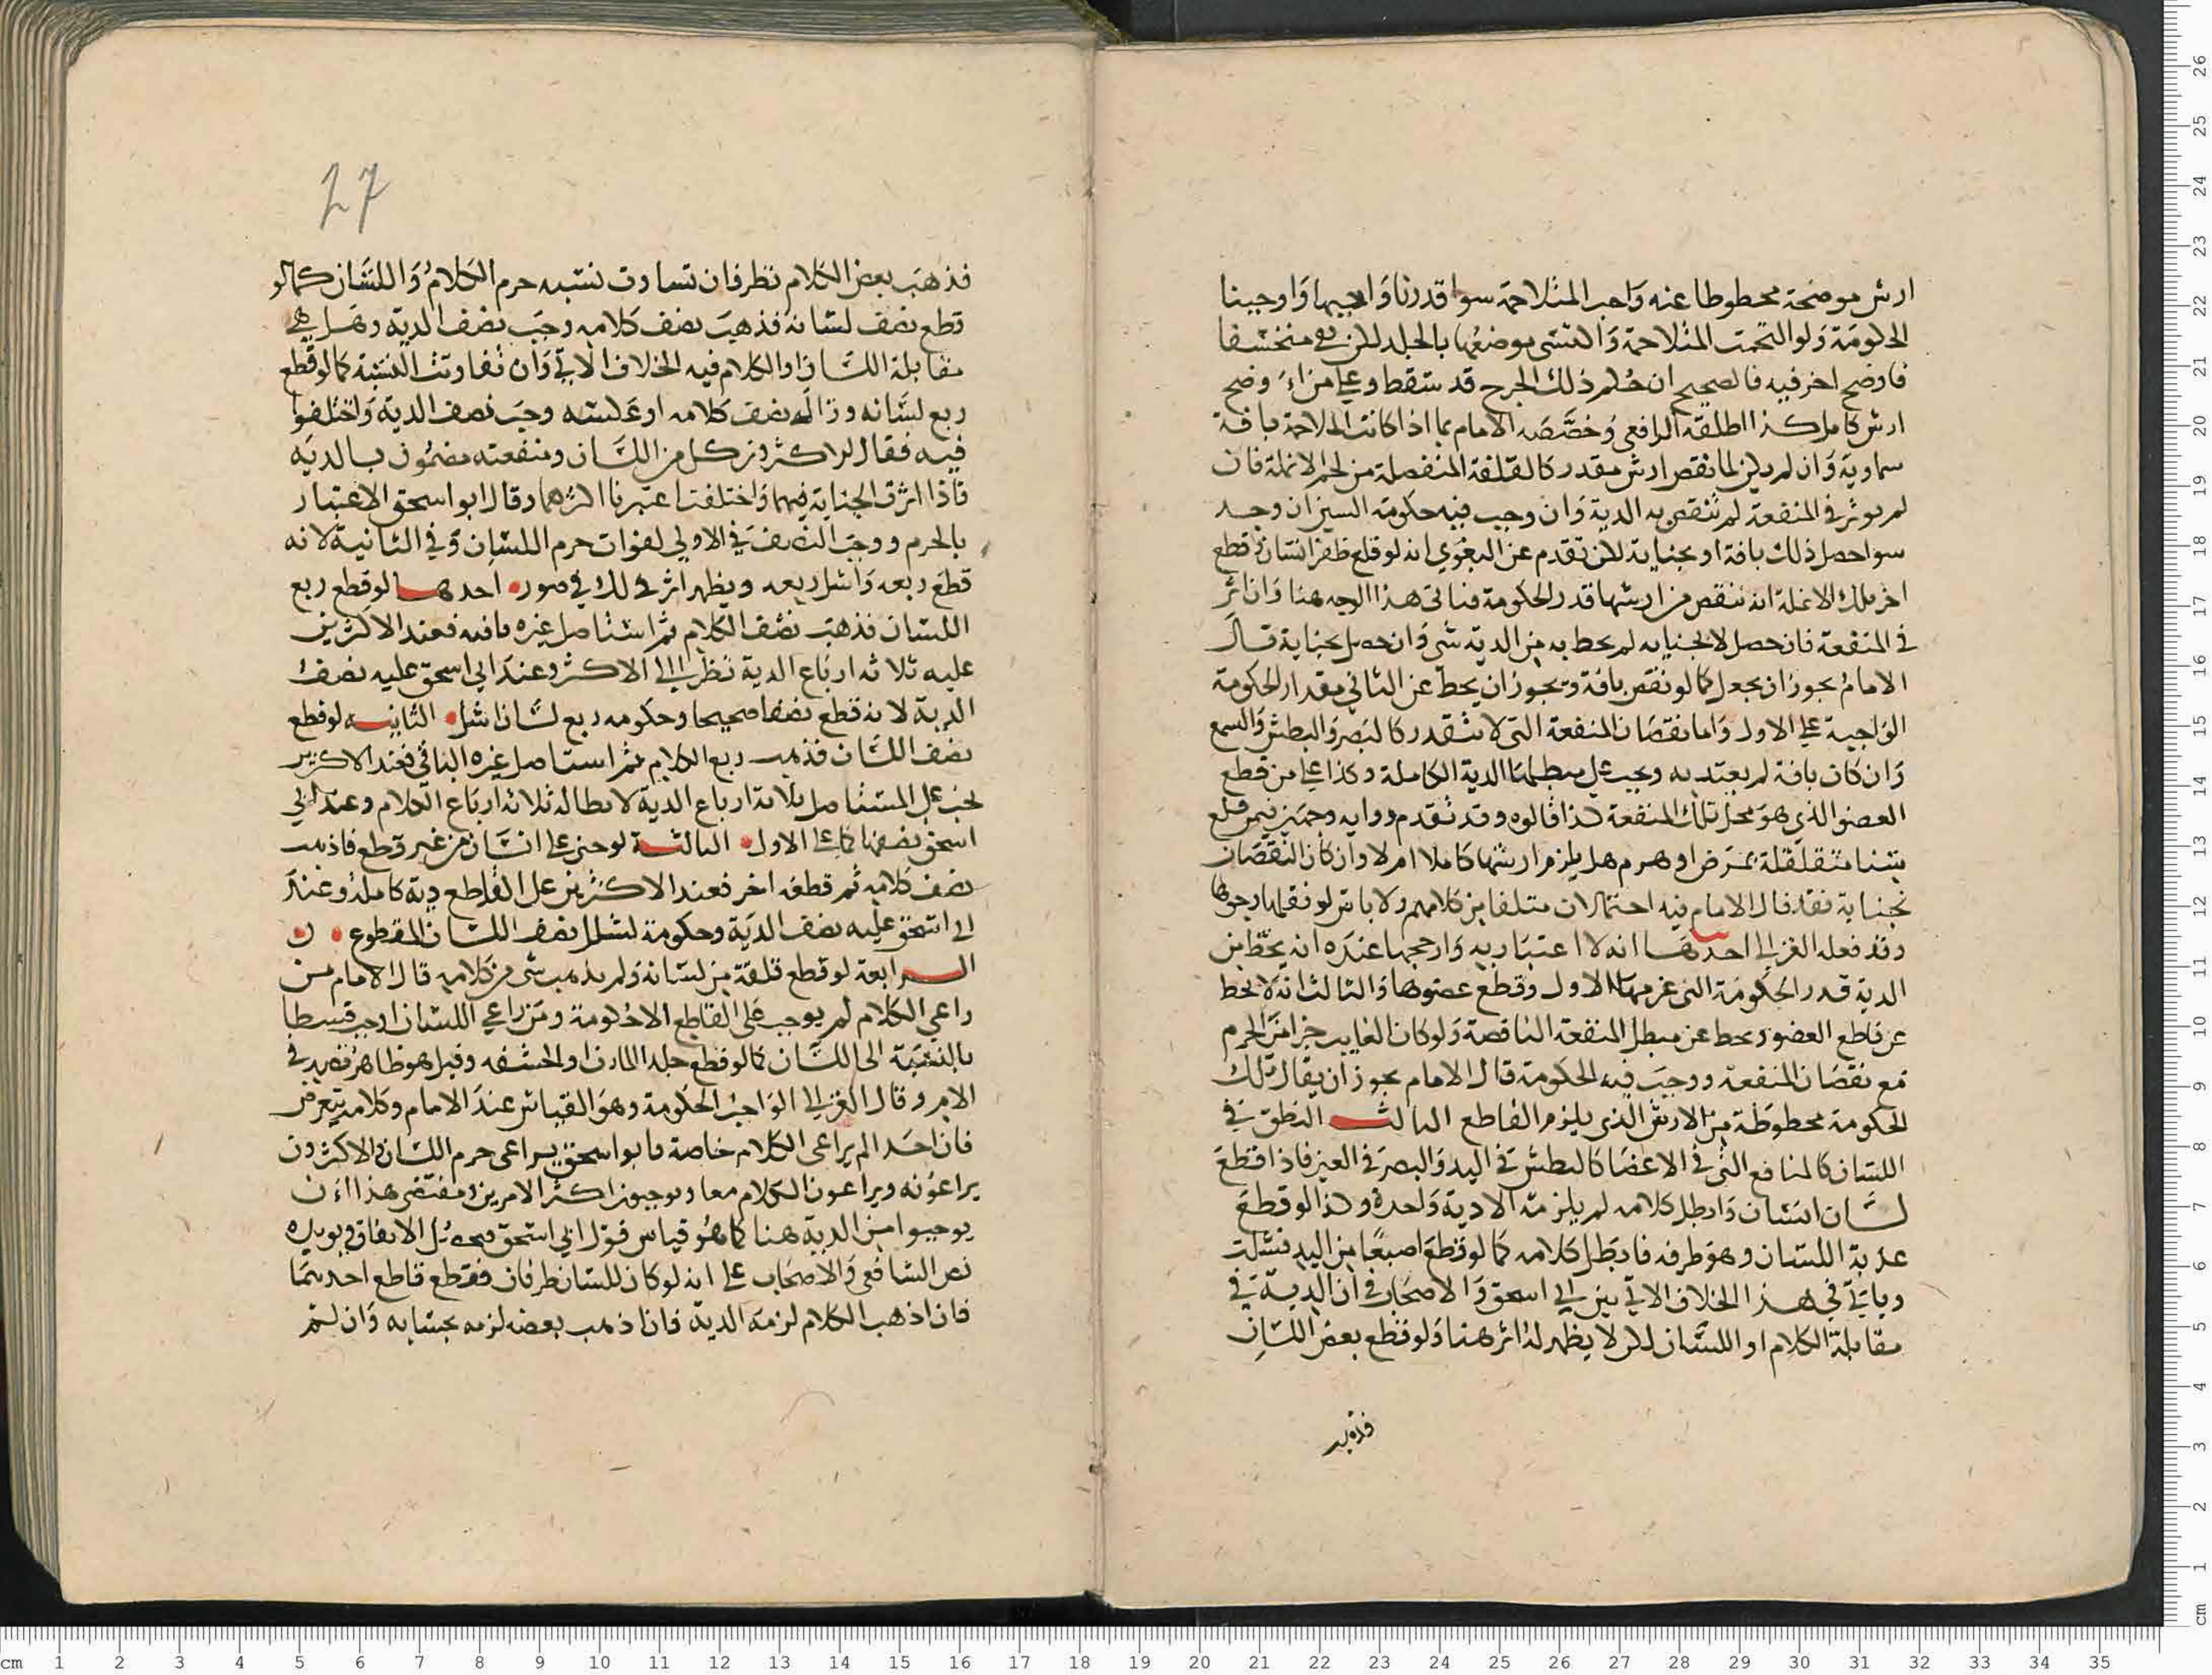 ارش موضحة محطوطا عنه واجب المتلاحمة سوا قدرنا واجبها واوجبنا
الحكومة ولو التحمت المتلاحمة واكتسى موضعها بالجلد لكن بقى منخسفا
فاوضح اخر فيه فالصحيح ان حكم ذلك الجرح قد سقط وعلى من اوضح
ارش كامل كذا اطلقه الرافعي وخصصه الامام بما اذا كانت المتلاحمة بافة
سماوية وان لم يكن لما نقص ارش مقدر كالفلقة المنفصلة من لحم الانملة فان
لم يوثر في المنفعة لم تنقص به الدية وان وجب فيه حكومة السيران وجد
سوا حصل ذلك بافة او بجناية لكن تقدم عن البغوي انه لو قلع ظفر انسان ثم قطع
اخر تلك الانملة انه ينقص من ارشها قدر الحكومة فياتى هذا الوجه هنا وان اثر
في المنفعة فان حصل لا بجنايه لم يحط به من الدية شى وان حصل بجناية قال
الامام يجوز ان يجعل كما لو نقص بافة ويجوز ان يحط عن الثاني مقدار الحكومة
الواجبة على الاول واما نقصان المنفعة التى لا تتقدر كالبصر والبطش والسمع
وان كان بافة لم يعتد به ويجب على مبطلها الدية الكاملة وكذا على من قطع
العضو الذى هو محل تلك المنفعة كذا قالوه وقد تقدم روايه وجهين فيمن قلع
سنا متقلقلة بمرض او هرم هل يلزم ارشها كاملا ام لا وان كان النقصان
بجناية فقد قال الامام فيه احتمالات متلقا من كلامهم ولا باس لو نقلها وجوها
وقد فعله الغزالي احدها انه لا اعتبار به وارجحها عنده انه يحط من
الدية قدر الحكومة التى غرمها الاول وقطع عضوها والثالث انه لا يحط
عن قاطع العضو ويحط عن مبطل المنفعة الناقصة ولو كان الغايب جزا من الجرم
مع نقصان المنفعة ووجب فيه الحكومة قال الامام يجوز ان يقال تلك
الحكومة محطوطة من الارش الذى يلزم القاطع الثالث النطق في
اللسان كالمنافع التى في الاعضا كالبطش في اليد والبصر في العين فاذا قطع
لسان انسان وابطل كلامه لم يلزمه الا دية واحدة وكذا لو قطع
عذبة اللسان وهو طرفه فابطل كلامه كما لو قطع اصبعا من اليد فشلت
وياتي في هذا الخلاف الاتي بين ابي اسحق والاصحاب في ان الدية في
مقابلة الكلام او اللسان لكن لا يظهر له اثر هنا ولو قطع بعض اللسان
فذهب
27
فذهب بعض الكلام نظر فان تساوت نسبه جرم الكلام واللسان كما لو
قطع نصف لسانه فذهب نصف كلامه وجب نصف الدية وهل هي
مقابلة اللسان او الكلام فيه الخلاف الاتي وان تفاوتت النسبة كما لو قطع
ربع لسانه وزال نصف كلامه او عكسه وجب نصف الدية واختلفوا
فيه فقال الاكثرون كل من اللسان ومنفعته مضمون بالدية
فاذا اثرت الجناية فيهما واختلفتا اعتبرنا اكثرهما وقال ابو اسحق الاعتبار
بالجرم ووجب النصف في الاولي لفوات جرم اللسان وفي الثانية لانه
قطع ربعه واشل ربعه ويظهر اثر ذلك في صور احدها لو قطع ربع
اللسان فذهب نصف الكلام ثم استاصل غيره باقيه فعند الاكثرين
عليه ثلاثه ارباع الدية نظرا الى الاكثر وعند ابي اسحق عليه نصف
الدية لانه قطع نصفا صحيحا وحكومه ربع لسان اشل الثانيه لو قطع
نصف اللسان فذهب ربع الكلام ثم استاصل غيره الباقي فعند الاكثرين
يجب على المستاصل ثلاثة ارباع الدية لابطاله ثلاثة ارباع الكلام وعند ابي
اسحق نصفها كما على الاول الثالثة لو جنى على انسان من غير قطع فاذهب
نصف كلامه ثم قطعه اخر فعند الاكثرين على القاطع دية كاملة وعند
ابي اسحق عليه نصف الدية وحكومة لشلل نصف اللسان المقطوع
الرابعة لو قطع فلقة من لسانه ولم يذهب شى من كلامه قال الامام من
راعى الكلام لم يوجب على القاطع الا حكومة ومن راعي اللسان اوجب قسطا
بالنسبة الى اللسان كما لو قطع جلد المارن او الحشفه وقيل هو ظاهر نصه في
الام وقال الغزالي الواجب الحكومة وهو القياس عند الامام وكلامه يتعرض
فان احدا لم يراعى الكلام خاصة فابو اسحق يراعى جرم اللسان والاكثرون
يراعونه ويراعون الكلام معا ويوجبون اكثر الامرين ومقتضى هذا ان
يوجبوا من الدية هنا كما هو قياس قول ابي اسحق الاتفاق ويويده
نص الشافعي والاصحاب على انه لو كان للسان طرفان فقطع قاطع احدهما
فان اذهب الكلام لزمه الدية فان ذهب بعضه لزمه بحسابه وان لم